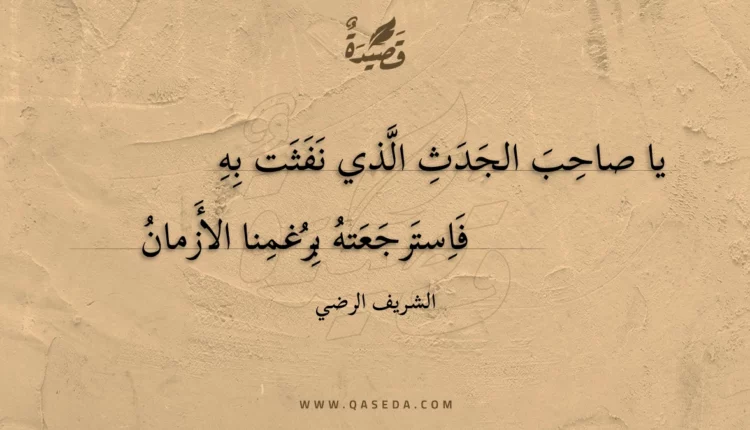 قَصِيدَةٌ
يا صاحِبَ الجَدَثِ الَّذي نَفَثَت بِهِ
فَاِستَرجَعَتهُ بِرُغمِنا الأَزمانُ
الشريف الرضي
WWW.QASEDA.COM